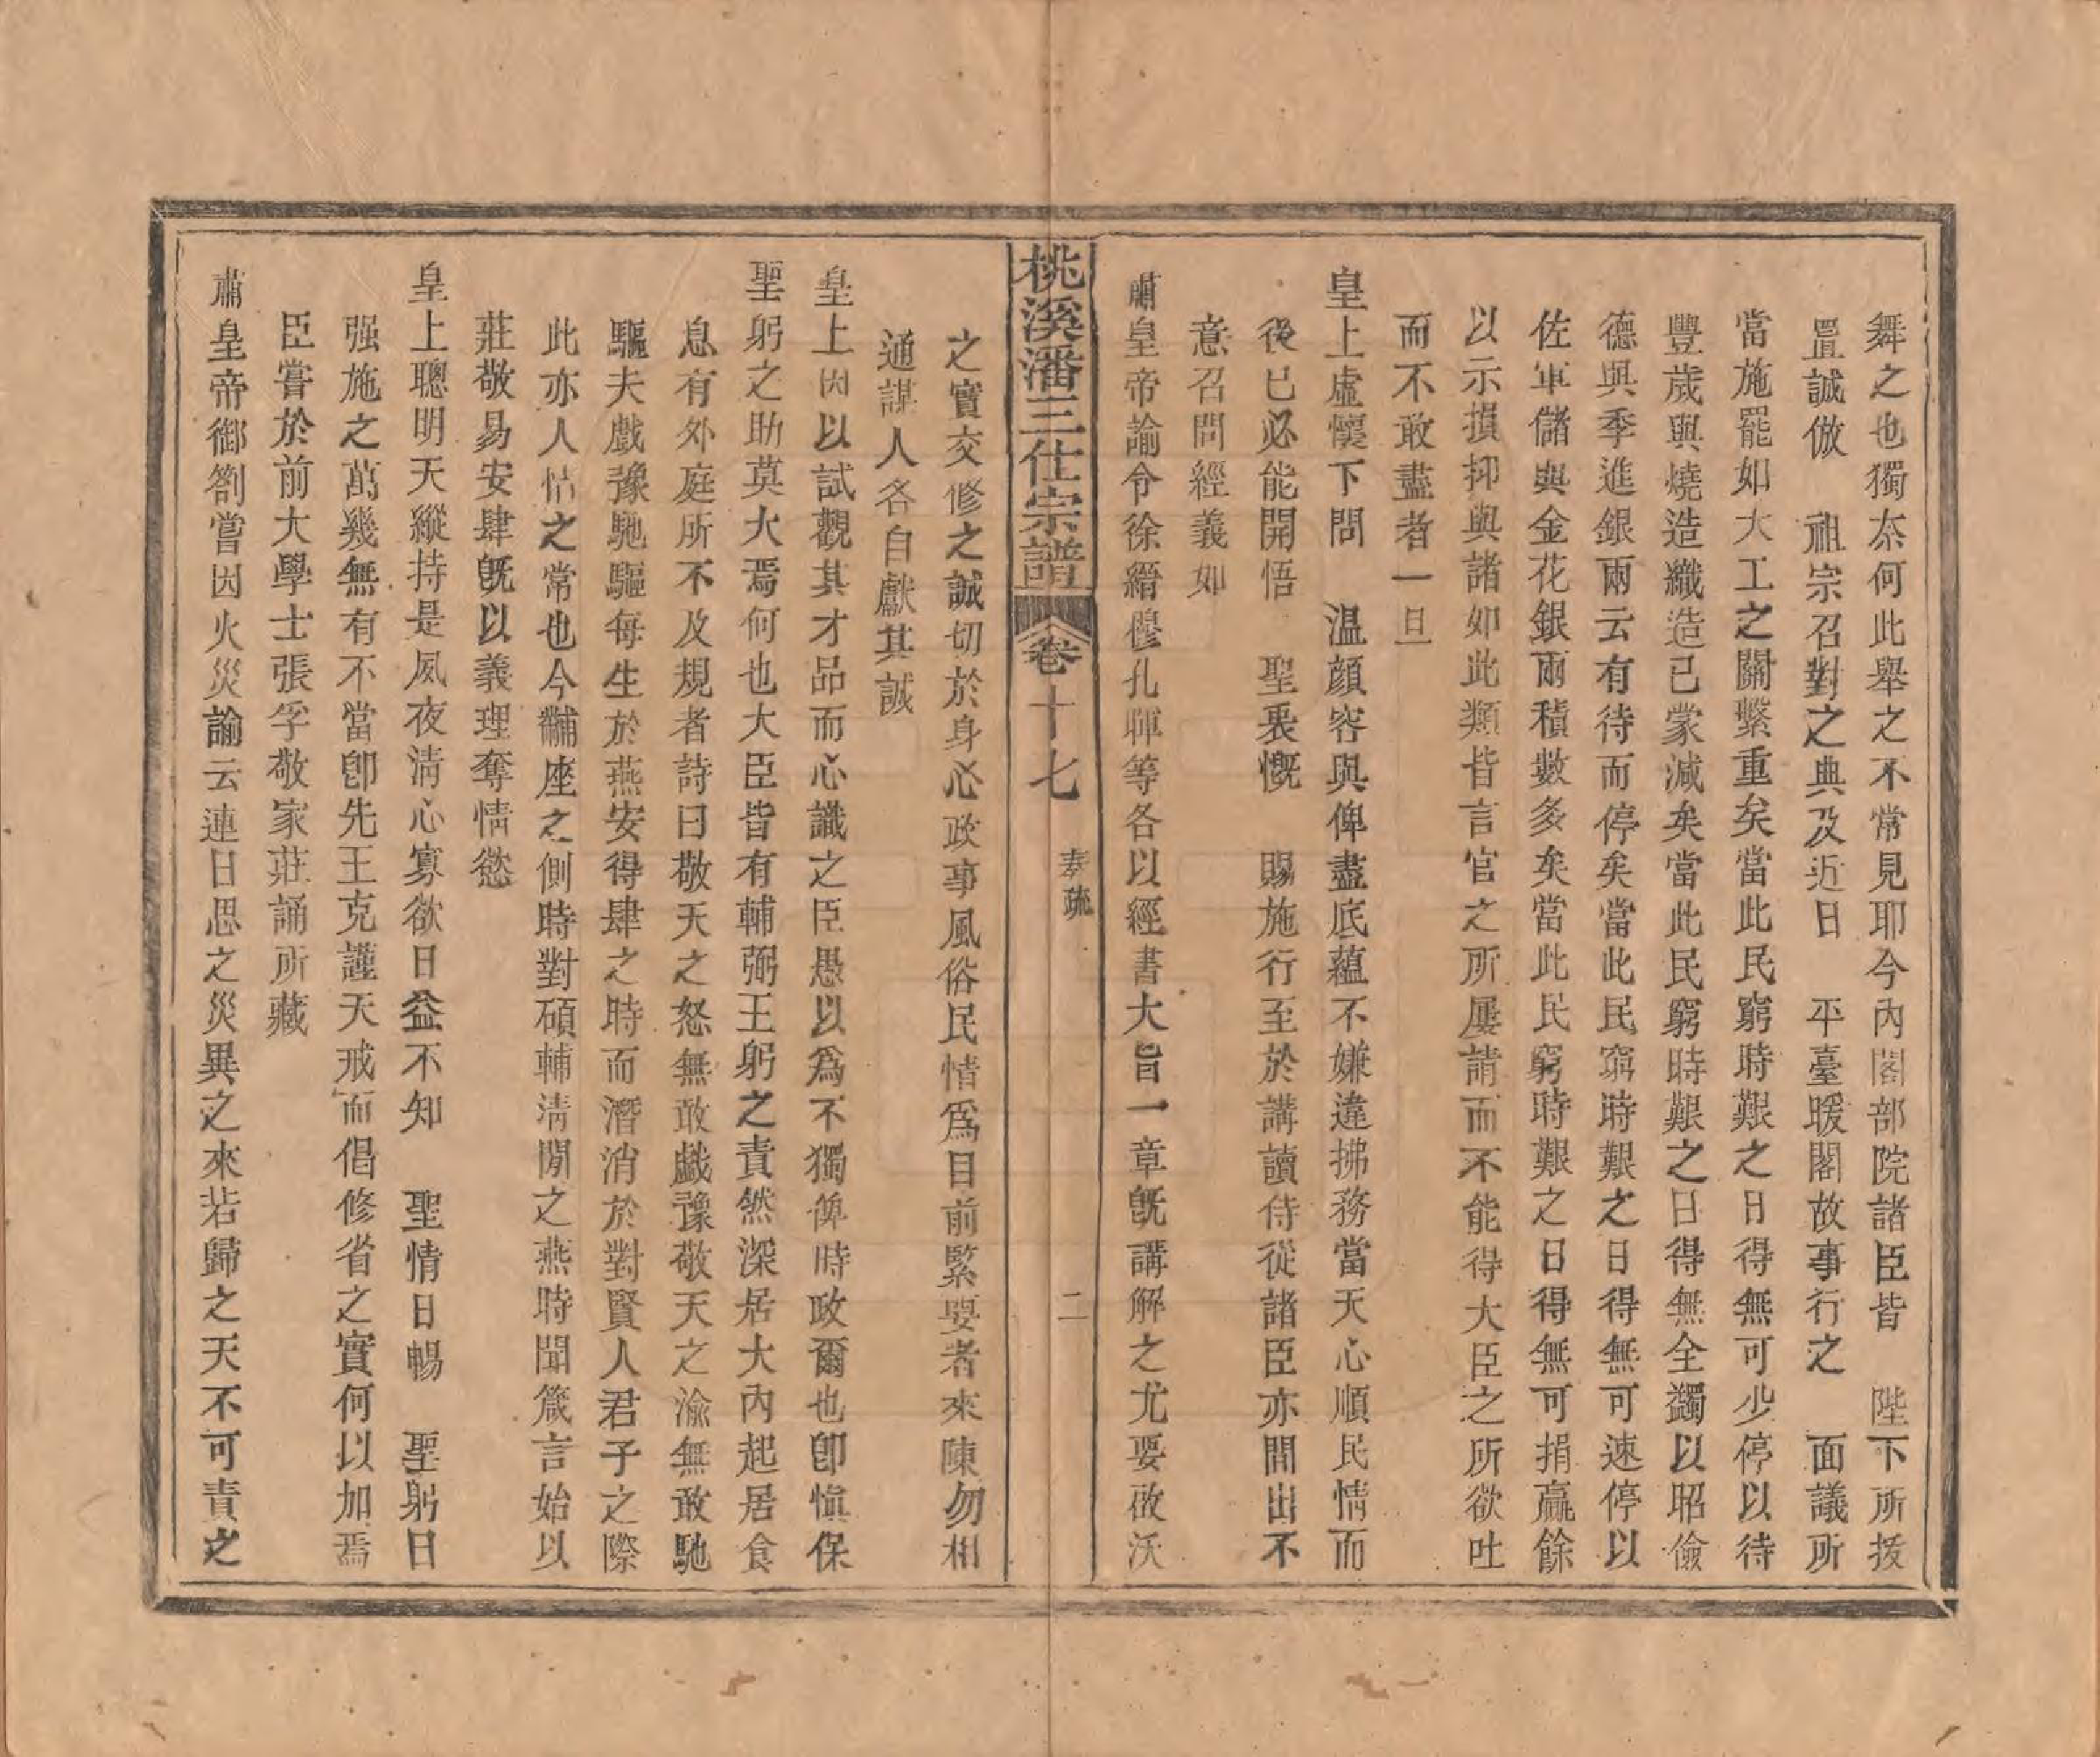 舞之也獨柰何此舉之不常見耶今內閣部院諸臣皆　陛下所拔
置誠倣　祖宗召對之典及近日　平臺暖閣故事行之　面議所
當施罷如大工之關繫重矣當此民窮時艱之日得無可少停以待
豐歲與燒造織造已蒙減矣當此民窮時艱之日得無全蠲以昭儉
德與季進銀兩云有待而停矣當此民窮時艱之日得無可速停以
佐軍儲與金花銀兩積數多矣當此民窮時艱之日得無可捐羸餘
以示損抑與諸如此類皆言官之所屢請而不能得大臣之所欲吐
而不敢盡者一旦
皇上虛懷下問　溫顏容與俾盡底蘊不嫌違拂務當天心順民情而
後已必能開悟　聖衷慨　賜施行至於講讀侍從諸臣亦間出不
意召問經義如
肅皇帝諭令徐縉穆孔暉等各以經書大旨一章旣講解之尤要啟沃
桃溪潘三仕宗譜　卷十七　奏疏　二
之實交修之誠切於身心政事風俗民情爲目前緊要者來陳勿相
通謀人各自獻其誠
皇上因以試觀其才品而心識之臣愚以爲不獨俾時政爾也卽愼保
聖躬之助莫大焉何也大臣皆有輔弼王躬之責然深居大內起居食
息有外庭所不及規者詩曰敬天之怒無敢戲豫敬天之渝無敢馳
驅夫戲豫馳驅每生於燕安得肆之時而潛消於對賢人君子之際
此亦人情之常也今黼座之側時對碩輔淸閒之燕時聞箴言始以
莊敬易安肆旣以義理奪情慾
皇上聰明天縱持是夙夜淸心寡欲日益不知　聖情日暢　聖躬日
强施之萬幾無有不當卽先王克謹天戒而倡修省之實何以加焉
臣嘗於前大學士張孚敬家莊誦所藏
肅皇帝御劄嘗因火災諭云連日思之災異之來若歸之天不可責之